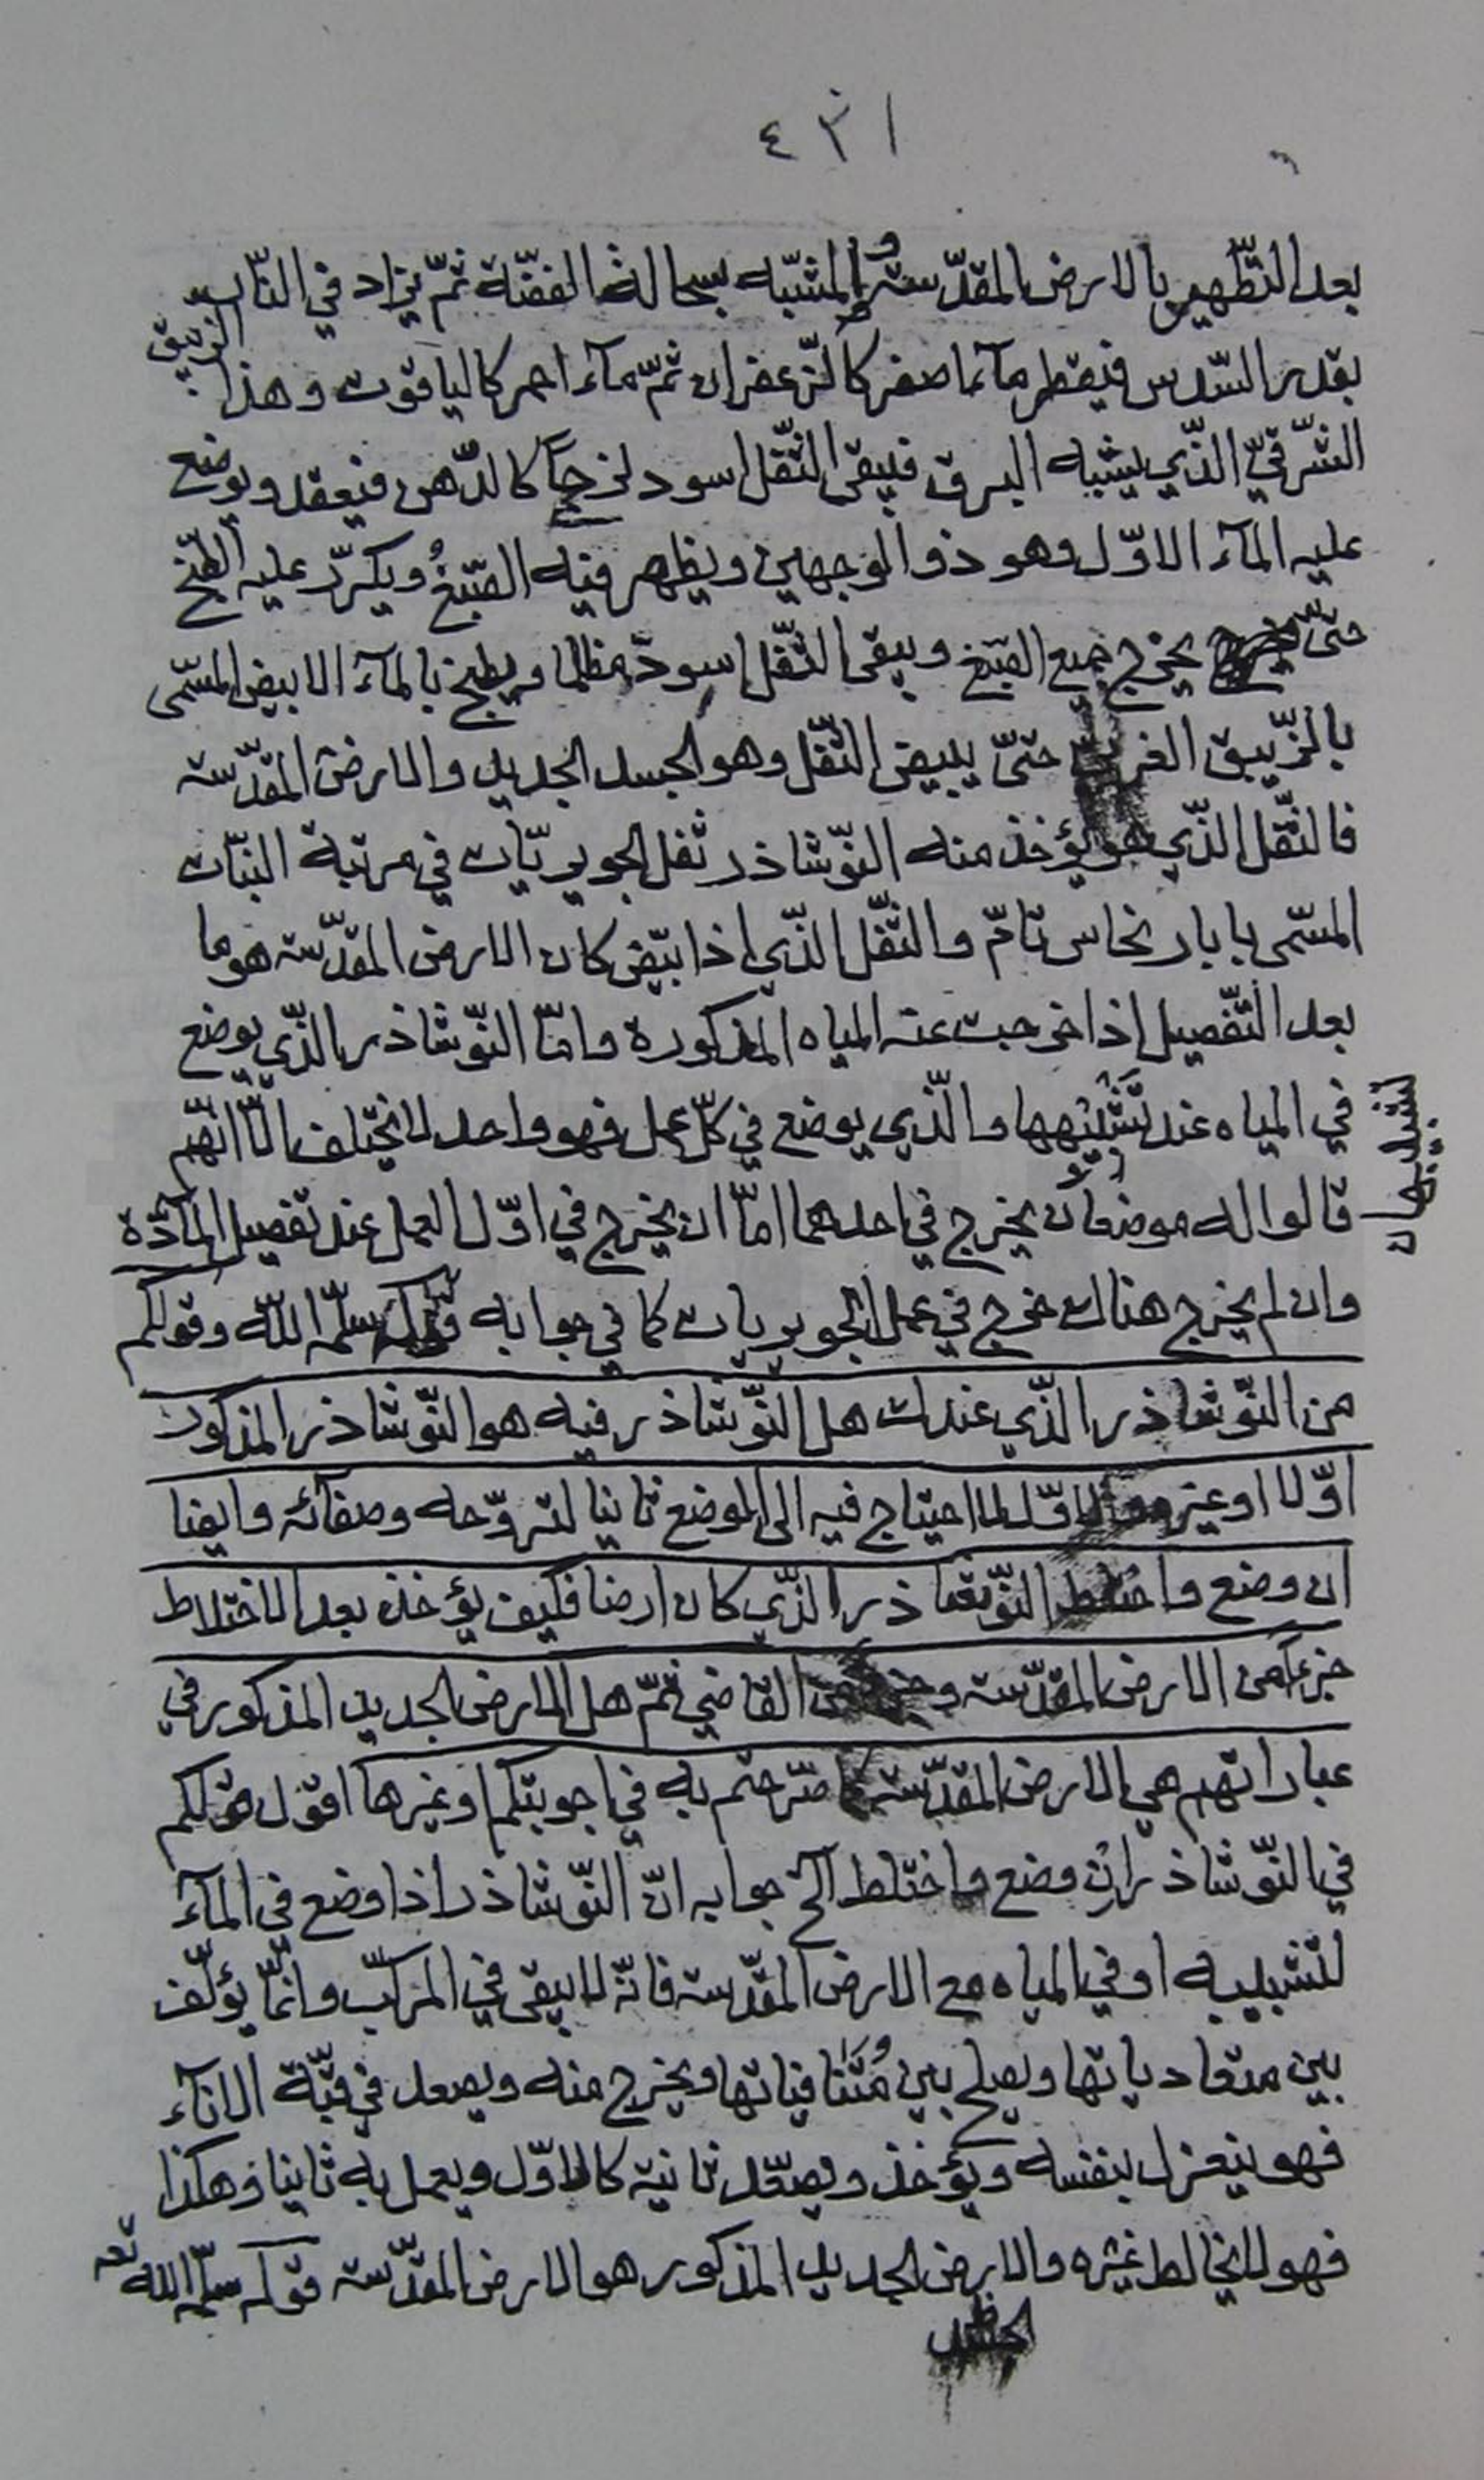 ٤٣١
بعد التّطهير بالارض المقدّسة و المشبّه بسحالة الفضّة ثمّ يزاد في النّار
بقدر السّدس فيقطر مآء اصفر كالزّعفران ثمّ مآء احمر كالياقوت وهذا الزيبق
الشّرقيّ الذّي يشبه البرق فيبقى الثّفل اسود لزجاً كالدّهن فيعقد ويوضع
عليه المآء الاوّل وهو ذو الوجهين ويظهر فيه الصّبغُ ويكرّر عليه الطّبخ
حتّى يخرج جميع الصّبغ ويبقى الثّفل اسود مظلما ويطبخ بالمآء الابيض المسّمى
بالزّيبق الغربي حتىّ يبيض الثّفل وهو الجسد الجديد والارض المقدّسة
فالثّفل الذّي هو يؤخذ منه النّوشاذر ثفل الجويريّات في مرتبة النبّات
المسّمى بابار نحاس تامّ والثّفل الذّي اذا ابيّض كان الارض المقدّسة هو ما
بعد التّفصيل اذا خرجت عنه المياه المذكورة وامّا النّوشاذر الذّي يوضع
في المياه عند تَشْبيْبها والّذي يوضع في كلّ عمل فهو واحد لا يختلف الّا انّهم
قالوا له موضعان يخرج في احدهما امّا ان يخرج في اوّل العمل عند تفصيل المآدّة
وان لم يخرج هناك خرج في عمل الجويريات كما في جوابه قوله سلّمه اللّه وقولكم
من النّوشاذر الذّي عندك هل النّوشاذر فيه هو النّوشاذر المذكور
اوّلا او غيره الاوّل لما احتياج فيه الى الموضع ثانيا لتروّحه وصفائه وايضا
ان وضع واختلط النّوشاذر الذّي كان ارضا فكيف يؤخذ بعد الاختلاط
جزءا من الارض المقدّسة و من القاضي ثمّ هل الارض الجديد المذكور في
عباراتهم هي الارض المقدّسة كما صّرحتم به في اجوبتكم او غيرها اقول قولكم
في النّوشاذر ان وضع واختلط الخ جوابه انّ النّوشاذر اذا وضع في المآء
للتشبيبه او في المياه مع الارض المقدّسة فانّه لا يبقى في المركّب وانمّا يؤلّف
بين متعادياتها ويصلح بين مُتَنافياتها ويخرج منه ويصعد في قبّة الانآء
فهو ينعزل بنفسه ويؤخذ ويصعّد ثانية كالاوّل ويعمل به ثانيا وهكذا
فهو لا يخالط غيره والارض الجديد المذكور هو الارض المقدّسة قوله سلّمه الله تعه